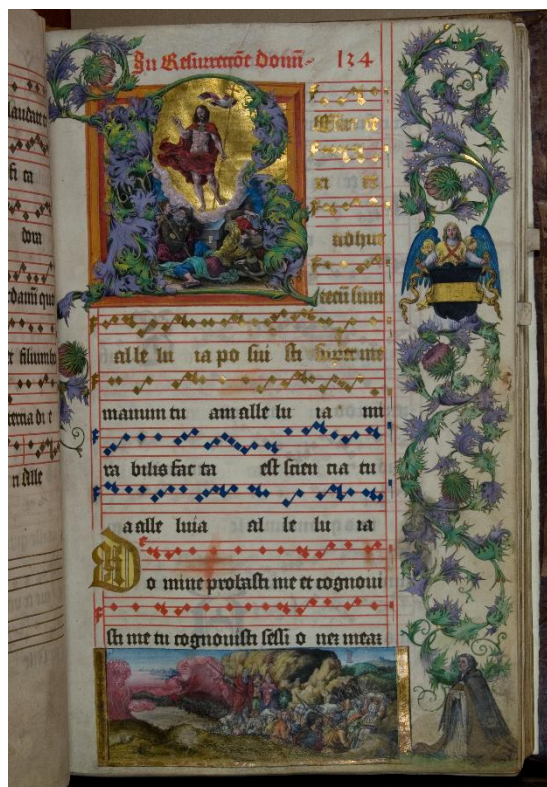 In Resurrectõe domĩ 134
resurrexi
et
adhuc
tecũ sum
al le lu ia po sui sti super me
manum tu am alle lu ia mi
ra bilis fac ta est scien tia tu
a alle luia al le lu ia
D o mine probasti me et cognoui
sti me tu cognouisti sessi o nez meaz
laudate
si ca
dom
filium
tercia di e